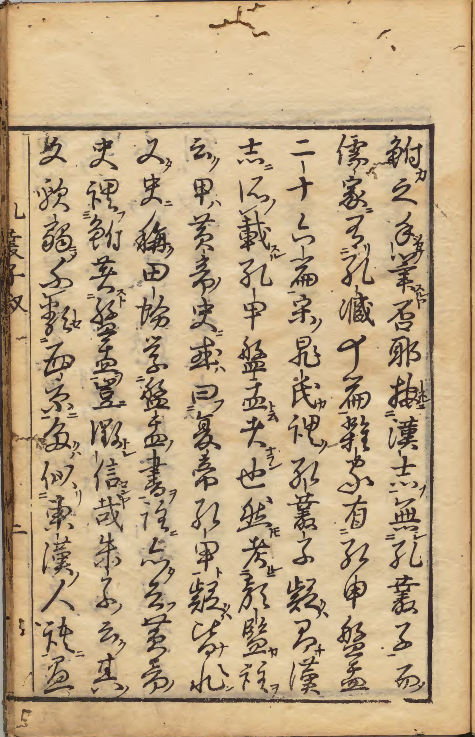 鮒之手筆否耶按漢志無孔叢子而
儒家有孔臧十篇雜家有孔甲盤盂
二十六篇宋晁氏謂孔叢子疑即漢
志所載孔甲盤盂者也然考顏監註
云甲黃帝史或曰夏帝孔甲疑皆非
又史稱田蚡學盤盂書註亦云黃帝
史謂鮒著盤盂豈徵信哉朱子云其
文軟弱不類西京多似東漢人語盖
孔叢子叙 二